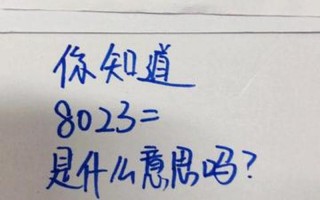 你知道
8023=
是什么意思吗?